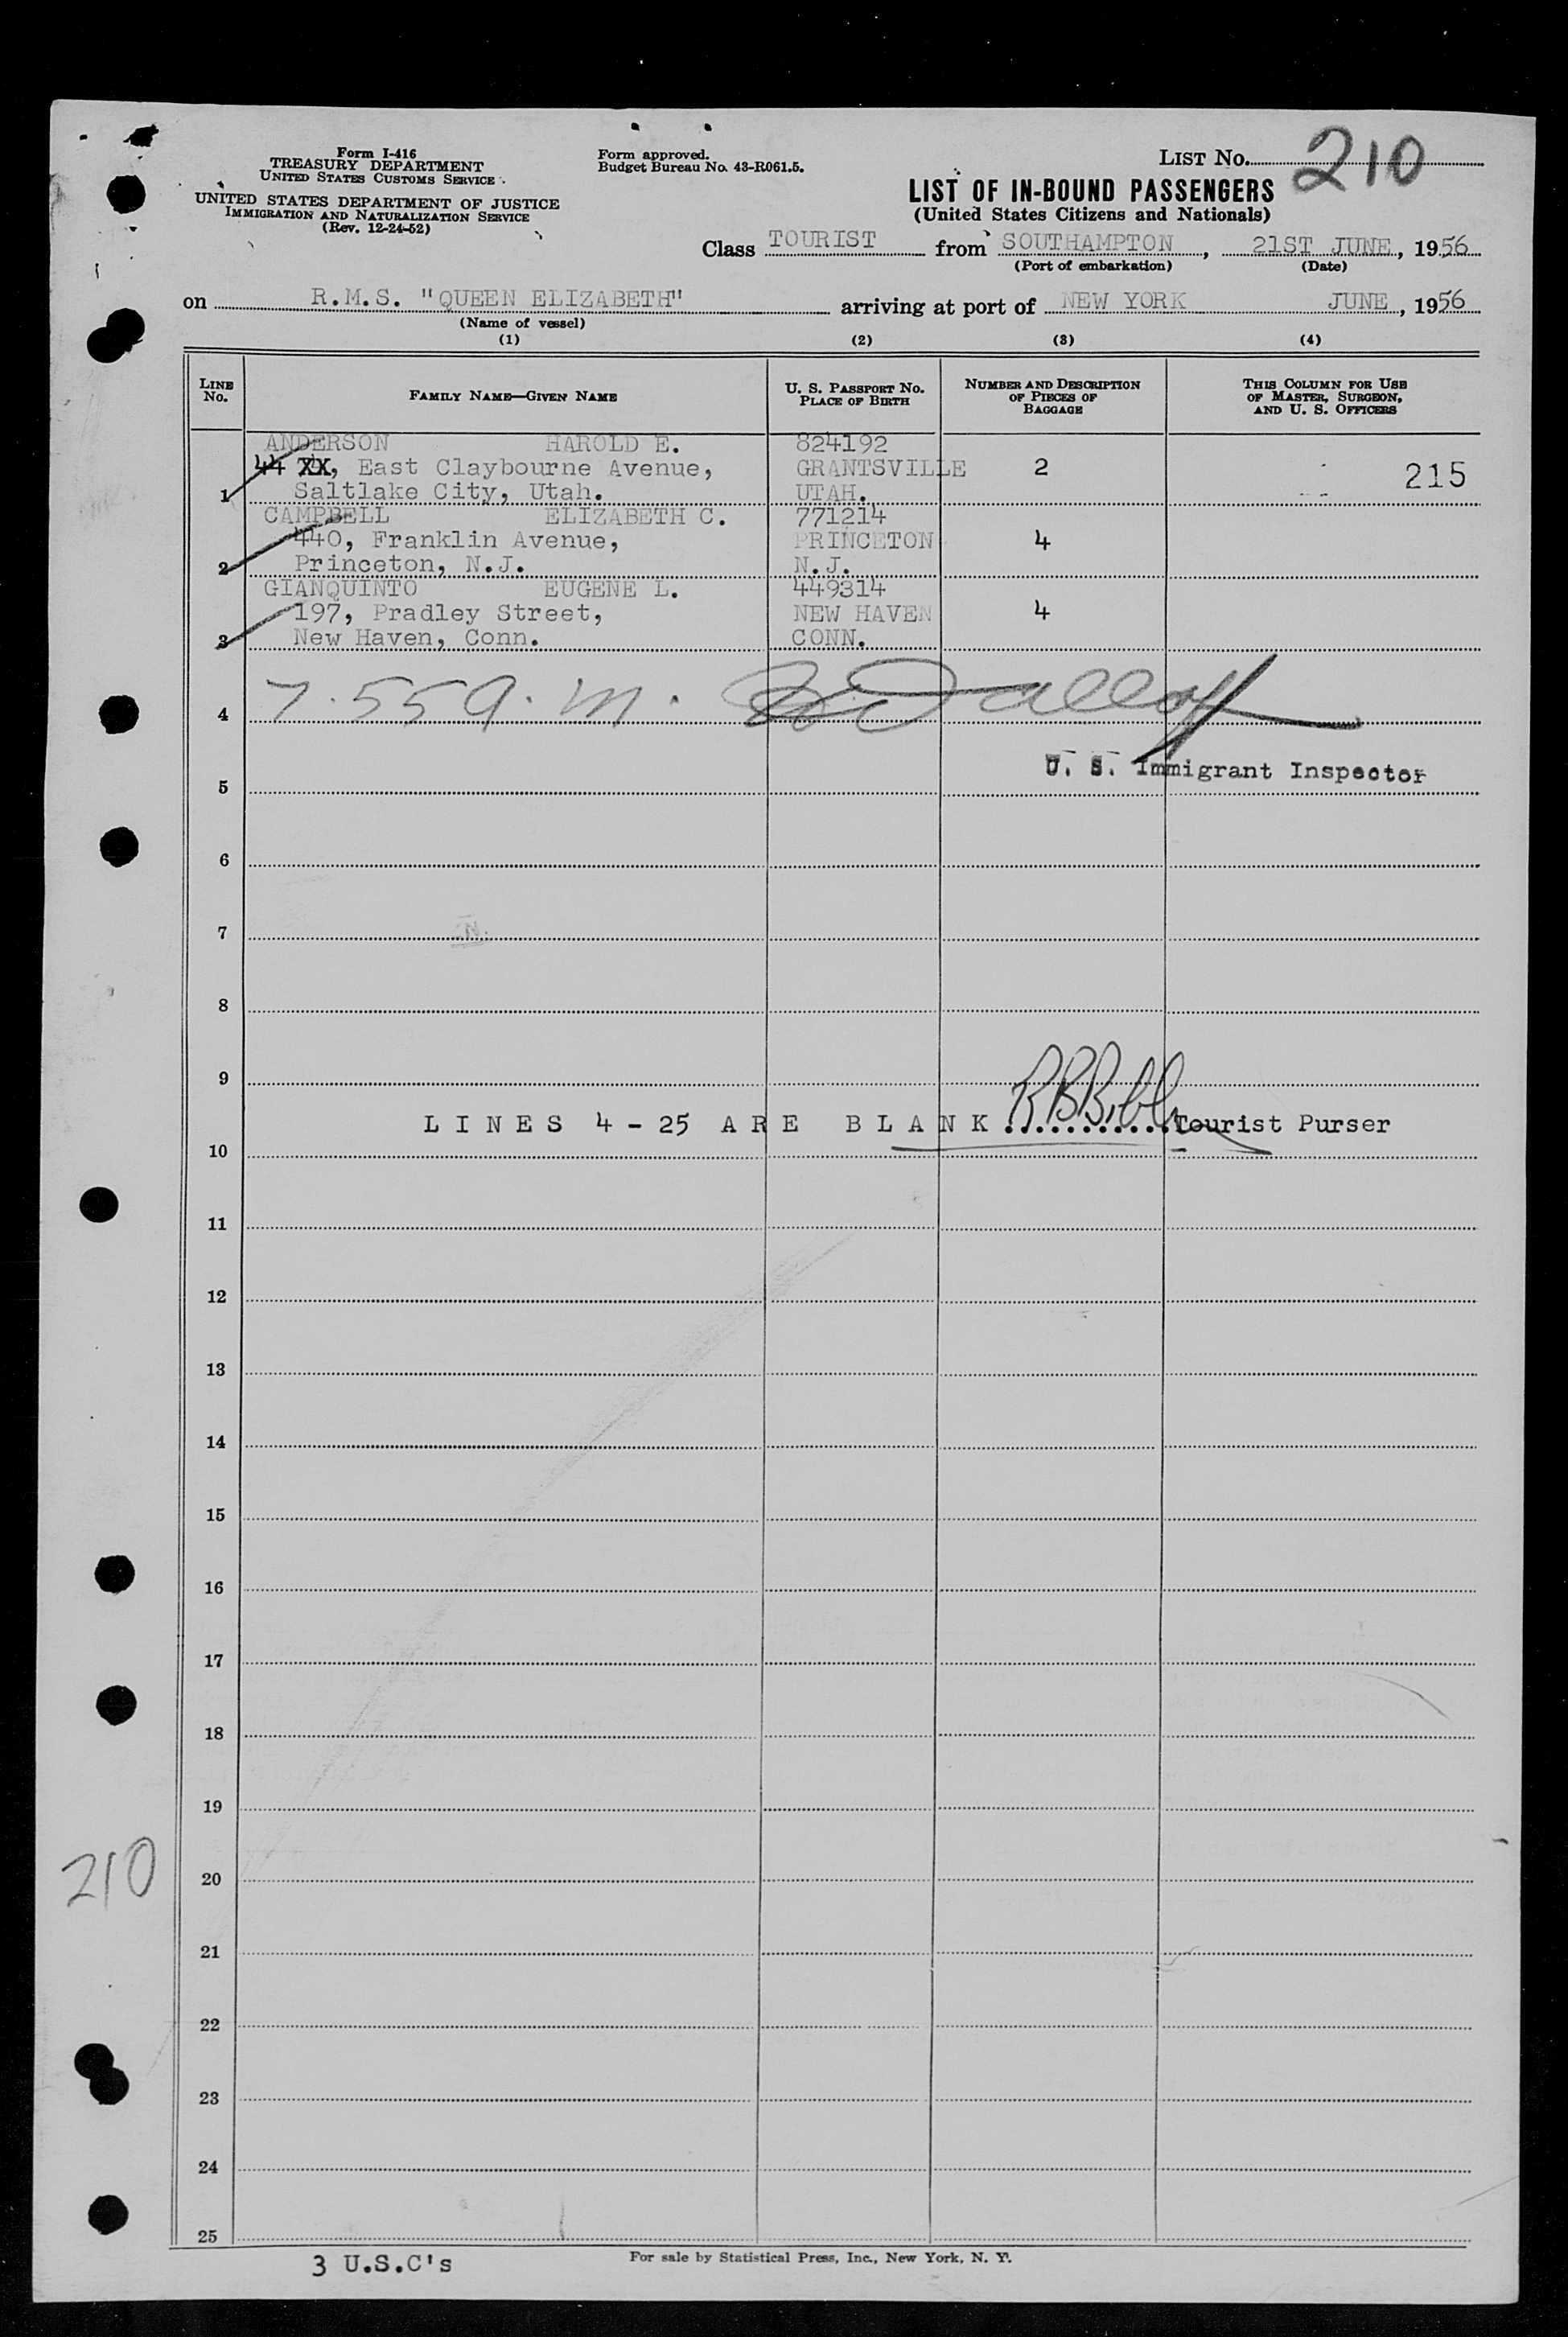 Form I-416
TREASURY DEPARTMENT
UNITED STATES CUSTOMS SERVICE
UNITED STATES DEPARTMENT OF JUSTICE
IMMIGRATION AND NATURALIZATION SERVICE
(Rev. 12-24-52)
Form approved.
Budget Bureau No. 43-R061.5.
LIST NO. 210
LIST OF IN-BOUND PASSENGERS
(United States Citizens and Nationals)
Class TOURIST from SOUTHAMPTON, 21ST JUNE, 1956
(Port of embarkation) (Date)
on R.M.S. "QUEEN ELIZABETH" arriving at port of NEW YORK JUNE, 1956
(Name of vessel)
(1) (2) (3) (4)
LINE NO.
FAMILY NAME—GIVEN NAME
U. S. PASSPORT NO.
PLACE OF BIRTH
NUMBER AND DESCRIPTION
OF PIECES OF
BAGGAGE
THIS COLUMN FOR USE
OF MASTER, SURGEON,
AND U. S. OFFICERS
ANDERSON HAROLD E. 824192
44 XX, East Claybourne Avenue, GRANTSVILLE 2 215
1 Saltlake City, Utah. UTAH.
CAMPBELL ELIZABETH C. 771214
440, Franklin Avenue, PRINCETON 4
2 Princeton, N.J. N.J.
GIANQUINTO EUGENE L. 449314
197, Pradley Street, NEW HAVEN 4
3 New Haven, Conn. CONN.
4 7.55 a.m.
U. S. Immigrant Inspector
5
6
7
8
9
LINES 4-25 ARE BLANK..........Tourist Purser
10
11
12
13
14
15
16
17
18
19
210
20
21
22
23
24
25
3 U.S.C's
For sale by Statistical Press, Inc., New York, N. Y.